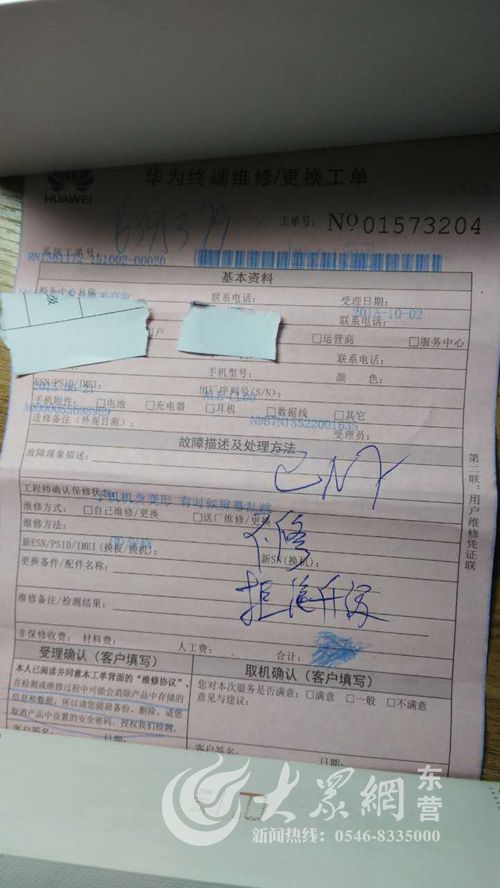 HUAWEI
华为终端维修/更换工单
工单号: No 01573204
6395379
系统工单号:
基本资料
联系电话: 受理日期:
2015-10-02
□运营商 □服务中心
联系电话:
手机型号: 颜 色:
ESN/PSID/IMEI: 出厂序列号(S/N):
手机附件: □电池 □充电器 □耳机 □数据线 □其它
送修备注(外观目测): 受理员:
N9B7N15522001635
故障描述及处理方法
故障现象描述:
工程师确认保修状态:
手机机身变形 有时候屏幕乱跳
维修方式: □自已维修/更换 □送厂维修/更换
维修方法: 不修
新ESN/PSID/IMEI(换板/换机): 新SN(换机):
更换备件/配件名称:
拒绝升级
维修备注/检测结果:
非保修收费: 材料费: 人工费: 合计:
受理确认(客户填写) 取机确认(客户填写)
本人已阅读并同意本工单背面的“维修协议”。
在检测或维修过程中可能会消除产品中存储的
信息和数据, 所以请您提前备份、删除。请您
取消产品中设置的安全密码, 授权我们检测。
客户签名: 日期:
您对本次服务是否满意: □满意 □一般 □不满意
意见与建议:
客户签名: 日期:
第二联: 用户维修凭证联
大眾網 东营
新闻热线: 0546-8335000